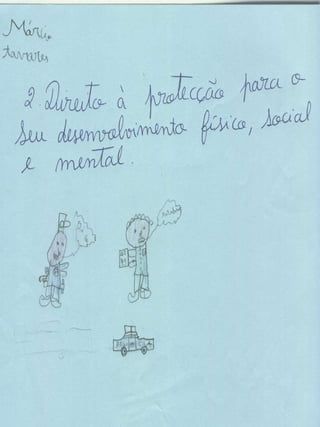 Mário
tavares
2. Direito à protecção para o
seu desenvolvimento físico, social
e mental.